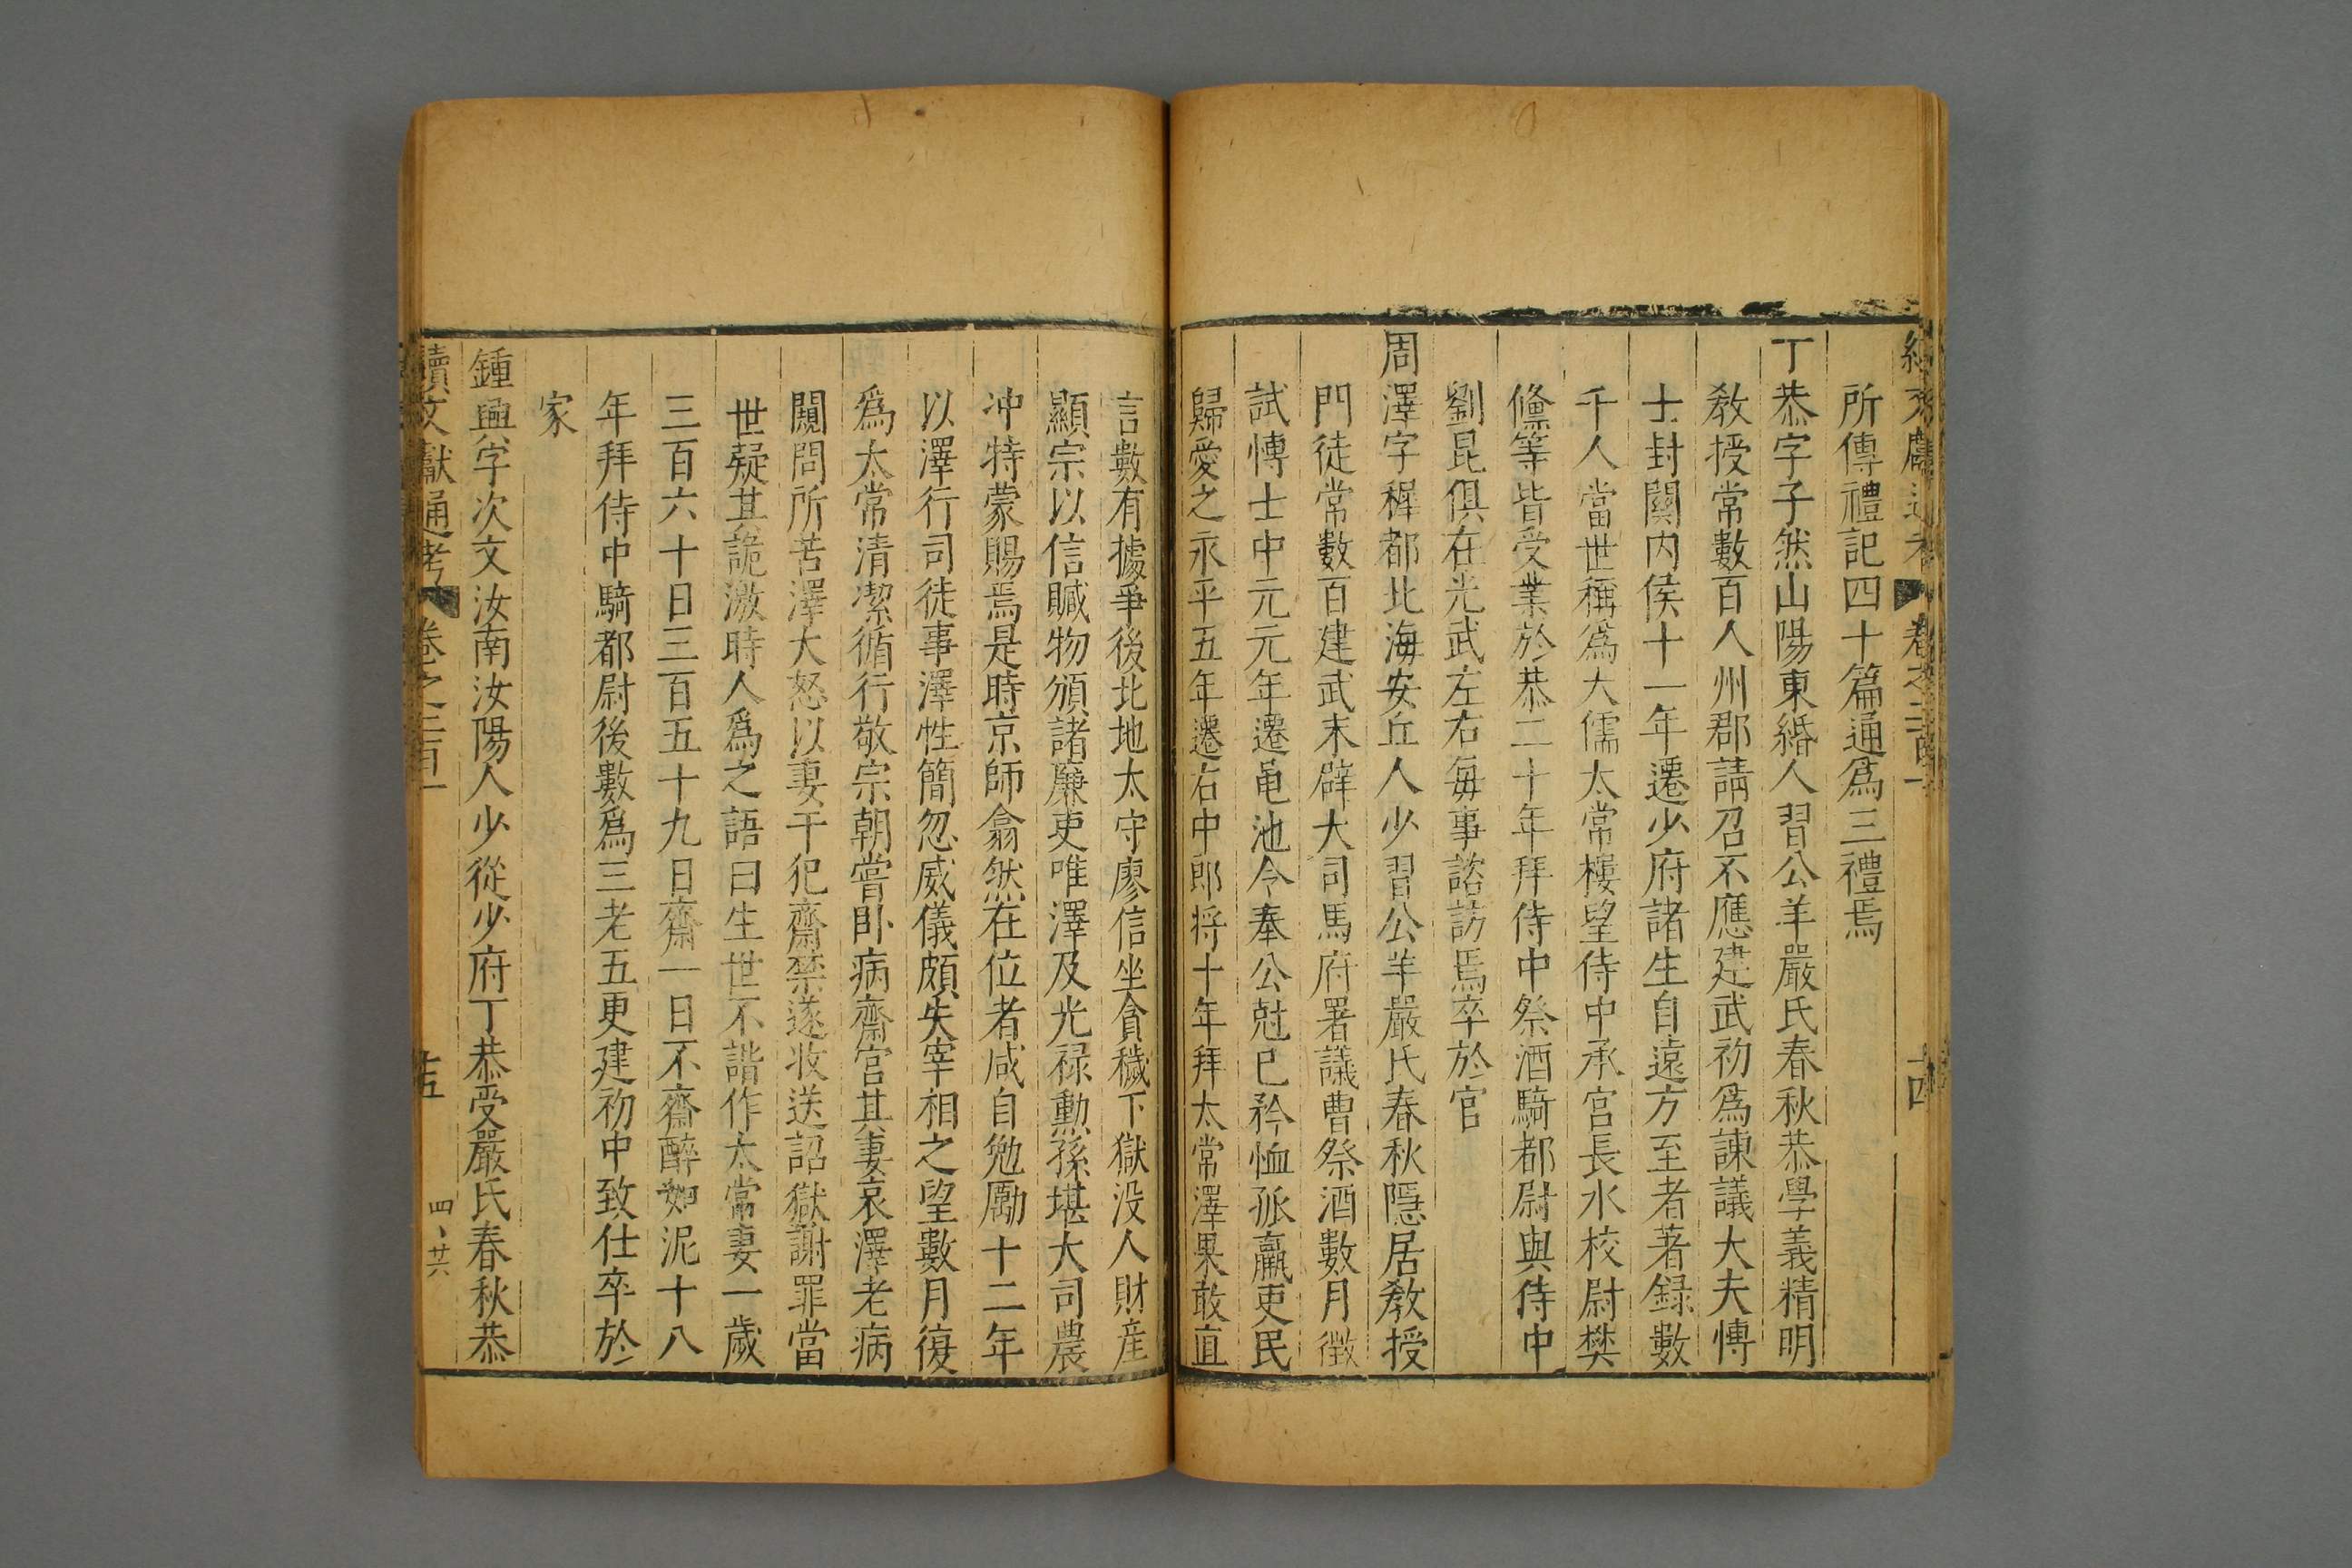 所傳禮記四十篇通爲三禮焉
丁恭字子然山陽東緡人習公羊嚴氏春秋恭學義精明
教授常數百人州郡請召不應建武初爲諫議大夫博
士封關内侯十一年遷少府諸生自遠方至者著録數
千人當世稱爲大儒太常樓望侍中承宮長水校尉樊
鯈等皆受業於恭二十年拜侍中祭酒騎都尉與侍中
劉昆俱在光武左右每事諮訪焉卒於官
周澤字穉都北海安丘人少習公羊嚴氏春秋隱居教授
門徒常數百建武末辟大司馬府署議曹祭酒數月徵
試博士中元元年遷黽池令奉公尅已矜恤孤羸吏民
歸愛之永平五年遷右中郎將十年拜太常澤果敢直
言數有據爭後北地太守廖信坐貪穢下獄没入財産
顯宗以信贓物頒諸廉吏唯澤及光禄勲孫堪大司農
冲特蒙賜焉是時京師翕然在位者咸自勉勵十二年
以澤行司徒事澤性簡忽威儀頗失宰相之望數月復
爲太常清潔循行敬宗朝嘗卧病齋宮其妻哀澤老病
闚問所苦澤大怒以妻干犯齋禁遂收送詔獄謝罪當
世疑其詭激時人爲之語曰生世不諧作太常妻一歲
三百六十日三百五十九日齋一日不齋醉如泥十八
年拜侍中騎都尉後數爲三老五更建初中致仕卒於
家
鍾興字次文汝南汝陽人少從少府丁恭受嚴氏春秋恭
續文獻通考 卷之二百一
十五
四、廿六